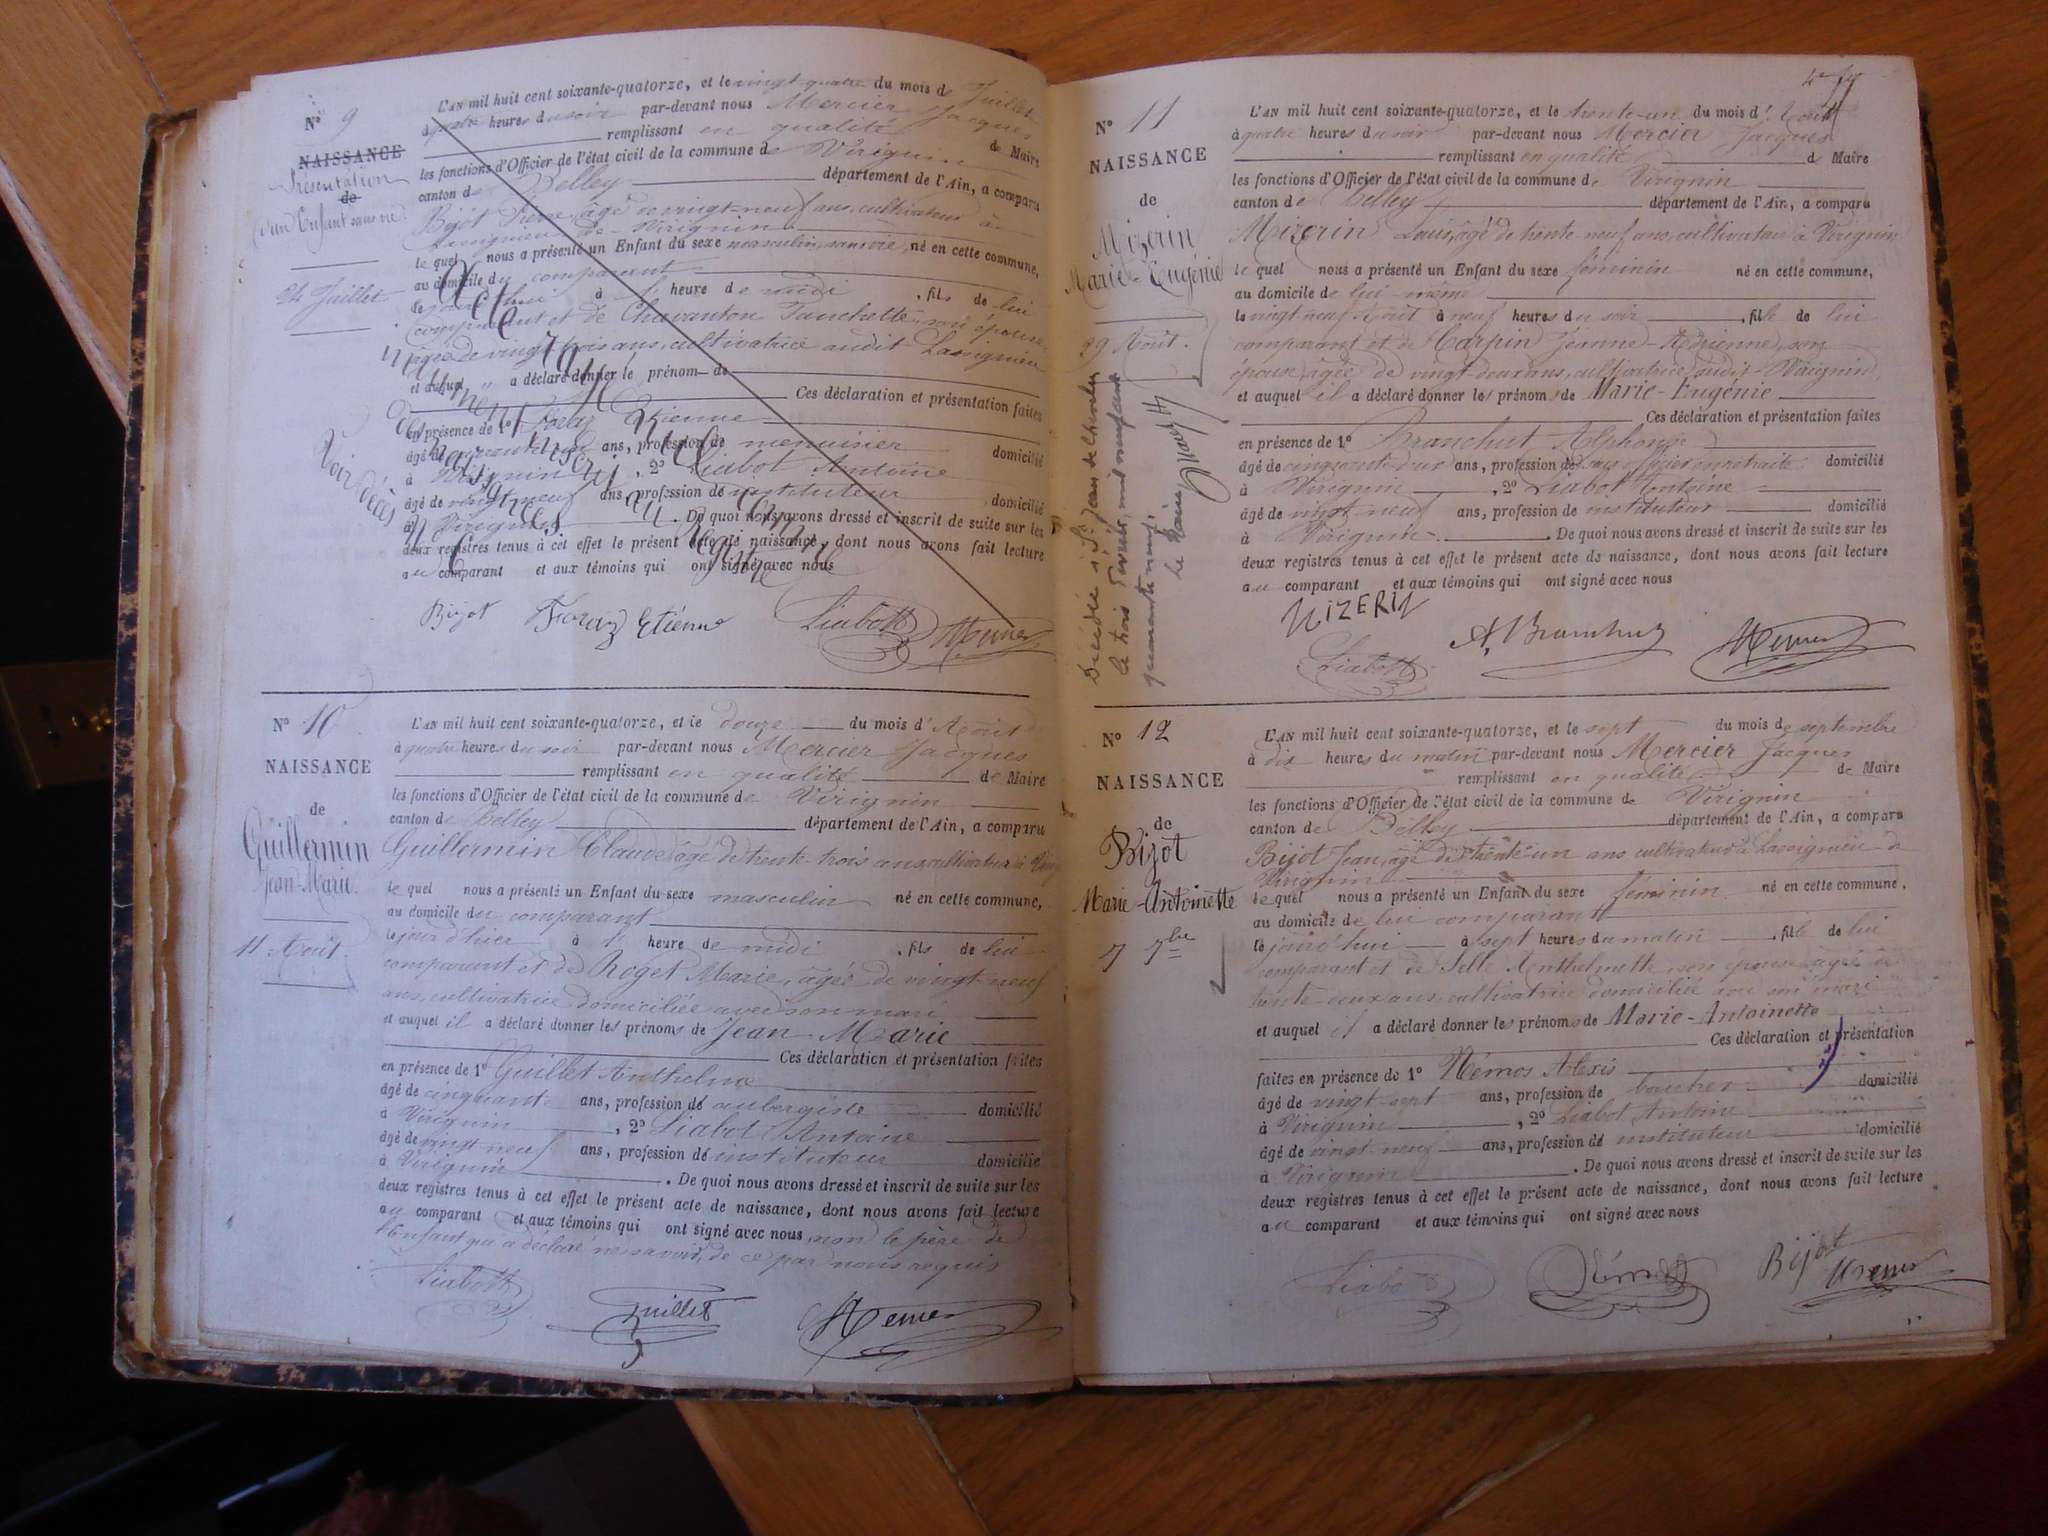 N° 9
NAISSANCE
Présentation
de
d'un Enfant sans vie
24 Juillet
L'AN mil huit cent soixante-quatorze, et le vingt-quatre du mois de Juillet
à quatre heures du soir par-devant nous Mercier Jacques
remplissant en qualité de Maire
les fonctions d'Officier de l'état civil de la commune de Virignin
canton de Belley département de l'Ain, a comparu
Bijot âgé de vingt-neuf ans, cultivateur à
Lassignieu de Virignin
le quel nous a présenté un Enfant du sexe masculin, sans vie, né en cette commune,
au domicile du comparant
à heure de midi, fils de lui
comparant et de Chavanton Fanchette, son épouse,
âgée de vingt-trois ans, cultivatrice audit Lassignieu
et auquel a déclaré donner le prénom de
Ces déclaration et présentation faites
en présence de 1° Etienne
âgé de ans, profession de menuisier domicilié
à Virignin, 2° Liabot Antoine
âgé de vingt-neuf ans, profession de instituteur domicilié
à Virignin. De quoi nous avons dressé et inscrit de suite sur les
deux registres tenus à cet effet le présent acte de naissance, dont nous avons fait lecture
au comparant et aux témoins qui ont signé avec nous
Voir décès
Bijot Etienne Liabot Mercier
N° 10
NAISSANCE
de
Guillermin
Jean-Marie.
11 Août
L'AN mil huit cent soixante-quatorze, et le douze du mois d'Août
à quatre heures du soir par-devant nous Mercier Jacques
remplissant en qualité de Maire
les fonctions d'Officier de l'état civil de la commune de Virignin
canton de Belley département de l'Ain, a comparu
Guillermin Claude, âgé de trente-trois ans, cultivateur à
le quel nous a présenté un Enfant du sexe masculin né en cette commune,
au domicile du comparant
le jour d'hier à heure de midi, fils de lui
comparant et de Roget Marie, âgée de vingt-neuf
ans, cultivatrice domiciliée avec son mari.
et auquel il a déclaré donner les prénoms de Jean Marie
Ces déclaration et présentation faites
en présence de 1° Guillet Anthelme
âgé de cinquante ans, profession de aubergiste domicilié
à Virignin, 2° Liabot Antoine
âgé de vingt-neuf ans, profession de instituteur domicilié
à Virignin. De quoi nous avons dressé et inscrit de suite sur les
deux registres tenus à cet effet le présent acte de naissance, dont nous avons fait lecture
au comparant et aux témoins qui ont signé avec nous non le père de
l'Enfant qui a déclaré ne savoir, de ce par nous requis
Liabot Guillet Mercier
N° 11
NAISSANCE
de
Mizerin
Marie-Eugénie
29 Août.
Décédée à St Jean de Chevelu
le trois Février mil neuf cent
quarante neuf.
le Maire
L'AN mil huit cent soixante-quatorze, et le trente-un du mois d'Août
à quatre heures du soir par-devant nous Mercier Jacques
remplissant en qualité de Maire
les fonctions d'Officier de l'état civil de la commune de Virignin
canton de Belley département de l'Ain, a comparu
Mizerin Louis, âgé de trente-neuf ans, cultivateur à Virignin
le quel nous a présenté un Enfant du sexe féminin né en cette commune,
au domicile de lui-même
le vingt-neuf Août à neuf heures du soir, fille de lui
comparant et de Carpin Jeanne-Adrienne, son
épouse, âgée de vingt-deux ans, cultivatrice audit Virignin
et auquel il a déclaré donner les prénoms de Marie-Eugénie
Ces déclaration et présentation faites
en présence de 1° Branchut Alphonse
âgé de cinquante-deux ans, profession de sous-officier en retraite domicilié
à Virignin, 2° Liabot Antoine
âgé de vingt-neuf ans, profession de instituteur domicilié
à Virignin. De quoi nous avons dressé et inscrit de suite sur les
deux registres tenus à cet effet le présent acte de naissance, dont nous avons fait lecture
au comparant et aux témoins qui ont signé avec nous
MIZERIN A. Branchut Mercier
Liabot
N° 12
NAISSANCE
de
Bizot
Marie-Antoinette
7 7bre
L'AN mil huit cent soixante-quatorze, et le sept du mois de septembre
à dix heures du matin par-devant nous Mercier Jacques
remplissant en qualité de Maire
les fonctions d'Officier de l'état civil de la commune de Virignin
canton de Belley département de l'Ain, a comparu
Bijot Jean, âgé de trente-un ans cultivateur à Lassignieu de
Virignin
le quel nous a présenté un Enfant du sexe féminin né en cette commune,
au domicile de lui comparant
le jourd'hui à sept heures du matin, fille de lui
comparant et de Selle Anthelmette, son épouse âgée de
trente-deux ans, cultivatrice domiciliée avec son mari
et auquel il a déclaré donner les prénoms de Marie-Antoinette
Ces déclaration et présentation
faites en présence de 1° Némos Alexis
âgé de vingt-sept ans, profession de boucher domicilié
à Virignin, 2° Liabot Antoine
âgé de vingt-neuf ans, profession de instituteur domicilié
à Virignin. De quoi nous avons dressé et inscrit de suite sur les
deux registres tenus à cet effet le présent acte de naissance, dont nous avons fait lecture
au comparant et aux témoins qui ont signé avec nous
Liabot Némos Bijot Mercier